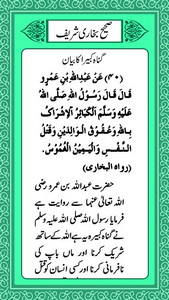 صحیح بخاری شریف
گناہ کبیرا کا بیان
(۴۰) عَنْ عَبْدِاللهِ بْنِ عَمْرٍو
قَالَ قَالَ رَسُوْلُ اللهِ صَلَّى اللهُ
عَلَيْهِ وَسَلَّمَ اَلْكَبَائِرُ اَلْاِشْرَاكُ
بِاللهِ وَعُقُوْقُ الْوَالِدَيْنِ وَقَتْلُ
النَّفْسِ وَالْيَمِيْنُ الْغَمُوْسُ.
(رواه البخاری)
حضرت عبداللہ بن عمرو رضی
اللہ تعالیٰ عنہما سے روایت ہے
فرمایا رسول اللہ صلی اللہ علیہ وسلم
نے گناہ کبیرہ یہ ہے اللہ کے ساتھ
شریک کرنا اور ماں باپ کی
نافرمانی کرنا اور کسی انسان کو قتل